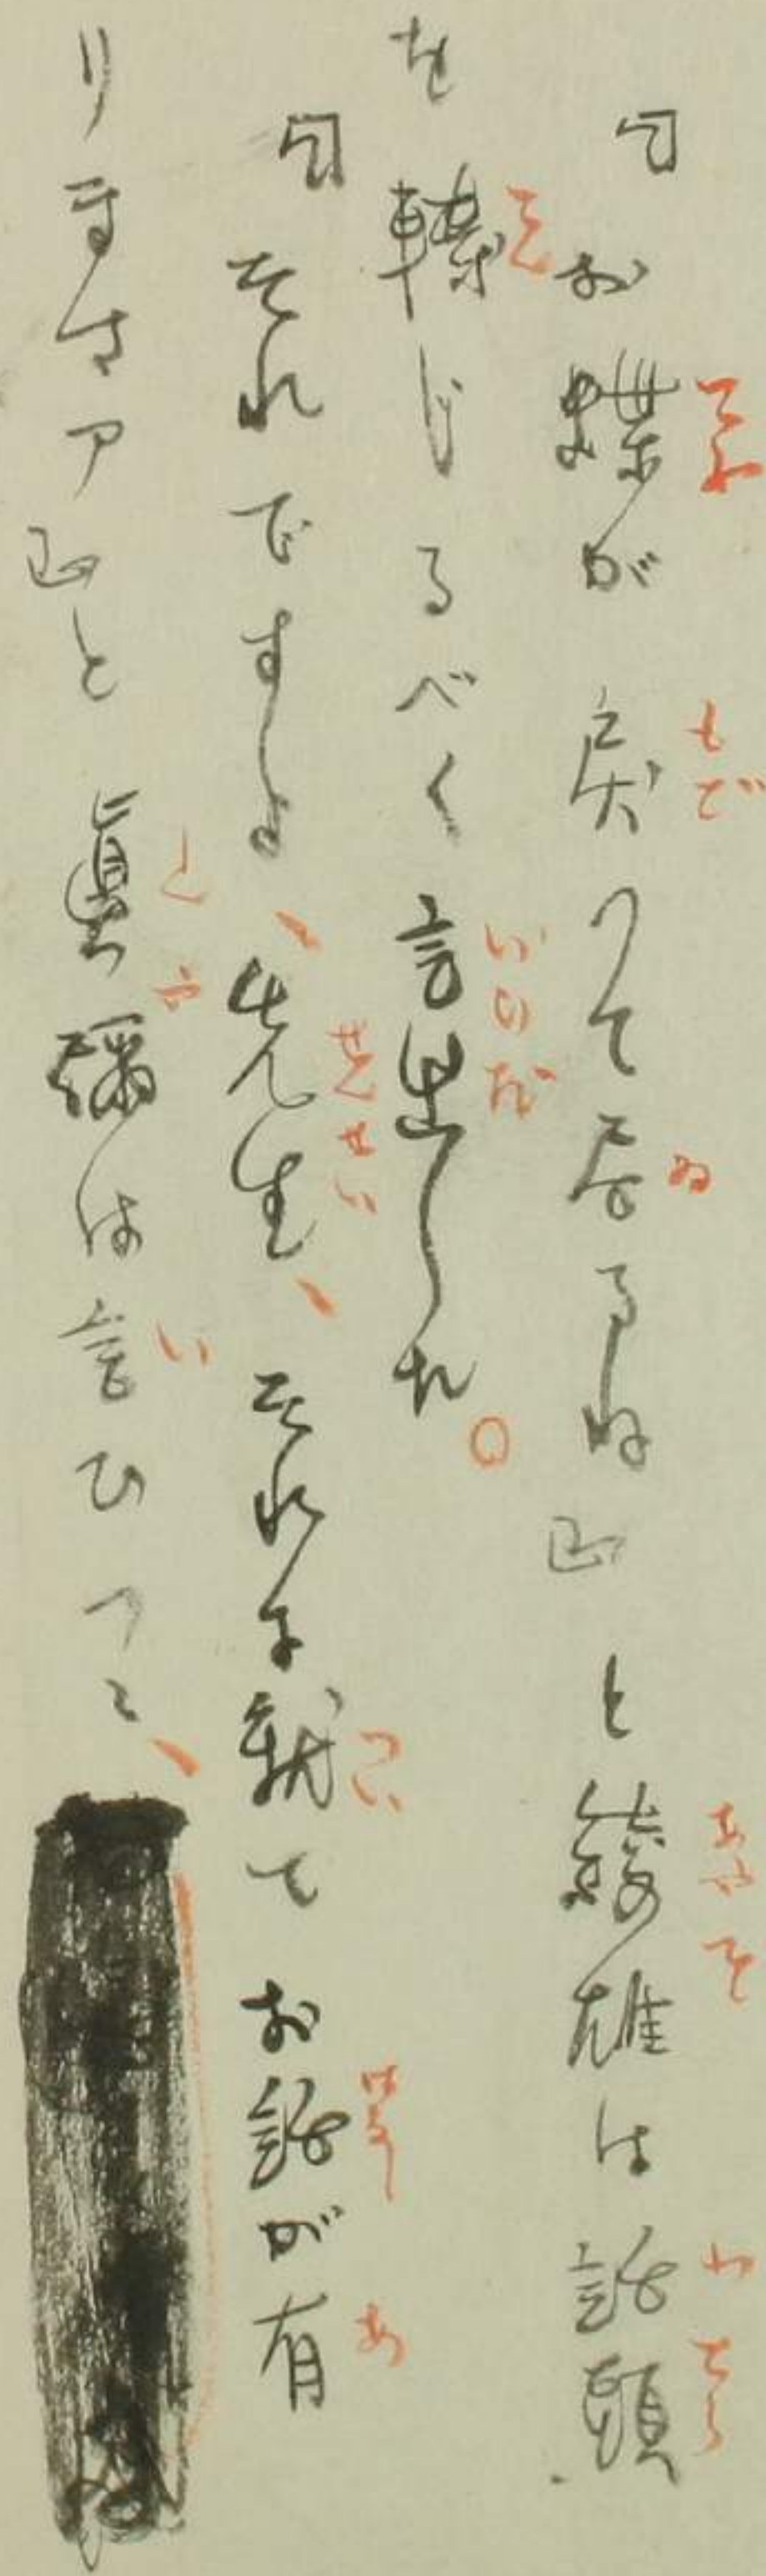 『お蝶が戻つて居るね』と綾雄は話頭
を轉じるべく言出した。
『それですよ、先生、それに就てお話が有
りまさア』と眞彌は言ひつゝ、